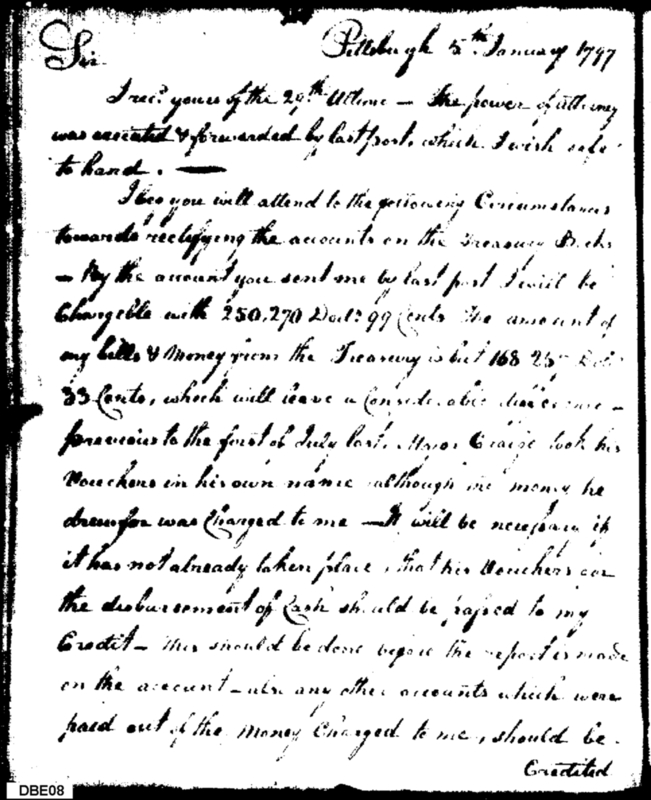 Pittsburgh 5th January 1797
Sir
I recd. yours of the 29th Ultimo — The power of attorney
was executed & forwarded by last post, which I wish safe
to hand. —
I beg you will attend to the following Circumstances
towards rectifying the accounts on the Treasury Books
— By the account you sent me by last post I will be
Chargeble with 250,270 Dolls. 99 Cents The amount of
my bills & Money from the Treasury is but 168
33 Cents, which will leave a Considerable difference —
previous to the first of July last, Major Craige took his
Vouchers in his own name although the money he
drew for was Charged to me — It will be necessary if
it has not already taken place, that his Vouchers for
the disbursement of Cash should be passed to my
Credit — This should be done before the report is made
on the account — also any other accounts which were
paid out of the Money Charged to me, should be
Credited
DBE08